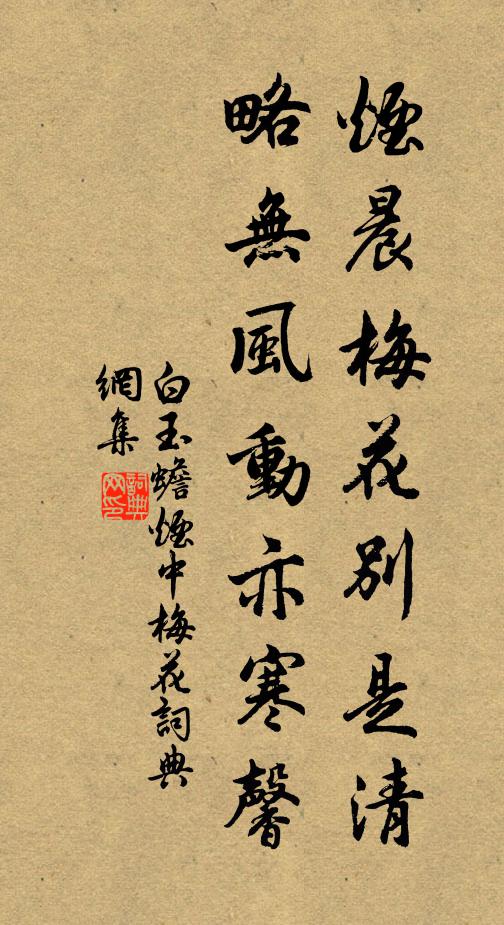 煙晨梅花別是清
略無風動亦寒馨
白玉蟾煙中梅花詞典
網集
詞典
网印